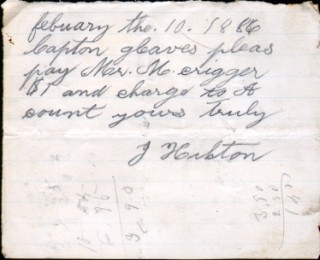 febuary the. 10. 1886
Capton gleaves pleas
pay Mr. M. crigger
$1 and charge to A
count yours truly
J Hibton
3 90
350